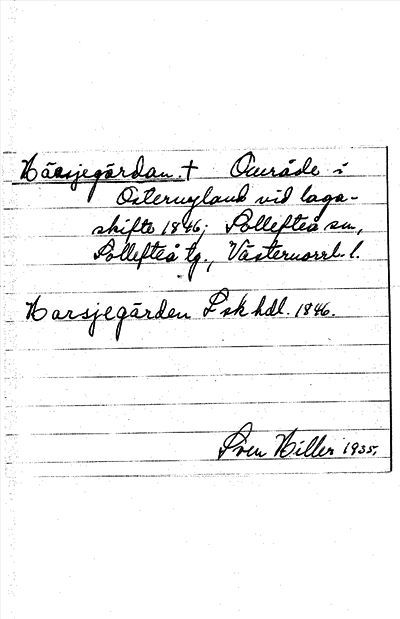 Häasjegårdan. † Område i
Östernyland vid laga-
skifte 1846; Sollefteå sn,
Sollefteå tg., Västernorrl. l.
Harsjegården L sk hdl. 1846.
Sven Hiller 1935.